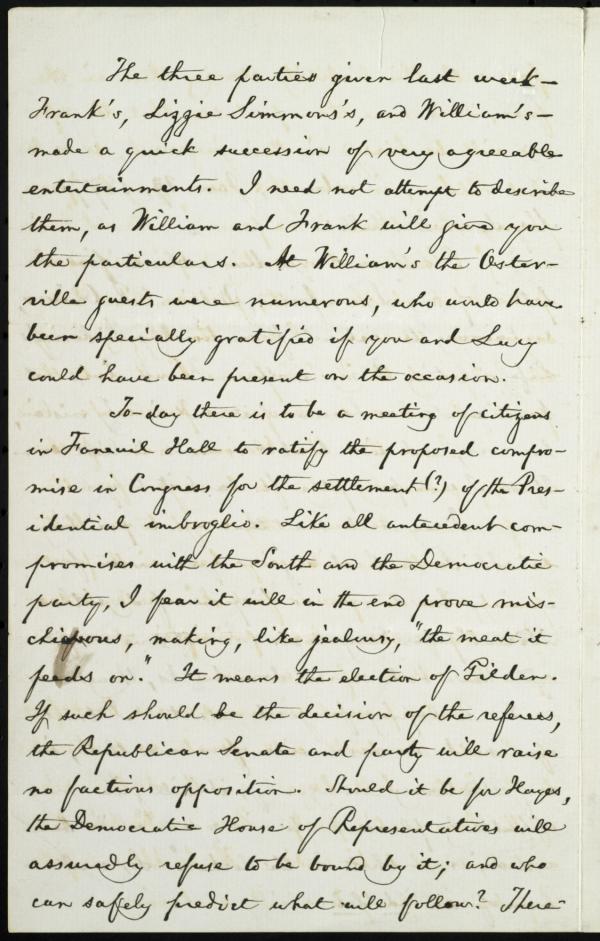 The three parties given last week—
Frank's, Lizzie Simmons's, and William's—
made a quick succession of very agreeable
entertainments. I need not attempt to describe
them, as William and Frank will give you
the particulars. At William's the Oster-
ville guests were numerous, who would have
been specially gratified if you and Lucy
could have been present on the occasion.
To-day there is to be a meeting of citizens
in Faneuil Hall to ratify the proposed compro-
mise in Congress for the settlement (?) of the Pres-
idential imbroglio. Like all antecedent com-
promises with the South and the Democratic
party, I fear it will in the end prove mis-
chievous, making, like jealousy, "the meat it
feeds on." It means the election of Tilden.
If such should be the decision of the referees,
the Republican Senate and party will raise
no factious opposition. Should it be for Hayes,
the Democratic House of Representatives will
assuredly refuse to be bound by it; and who
can safely predict what will follow? There-